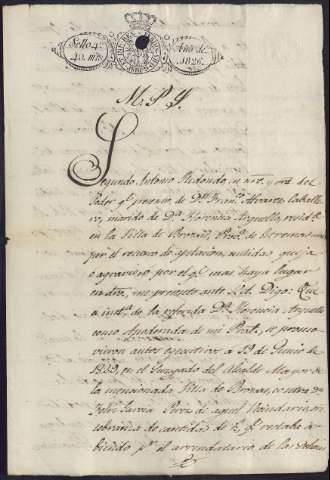 Sello 4º
40. mrs
Año de
1826.
M. P. S.
Segundo Antonio Redondo, en nre. y virtd. del
Poder qe. presento de Dn. Franco. Alvarez Caballe-
ro, marido de Da. Florencia Arguello, resid.te
en la Villa de Brozas, Prova. de Estremadura
por el recurso de apelacion, nulidad, queja
o agravio, o por el qe. mas haya lugar
en dro, me presento ante V.A. Digo: Que
a inst.a de la referida Da. Florencia Arguello
como Apoderada de mi Pral. se promo-
vieron autos egecutivos a 19 de Junio de
en el Juzgado del Alcalde Mayor de
la mencionada Villa de Brozas, contra Dn.
Felix Garcia de aquel Vecindario, sre
cobranza de cantidad de qe. restaba de-
biendo pr. el arrendatario de las